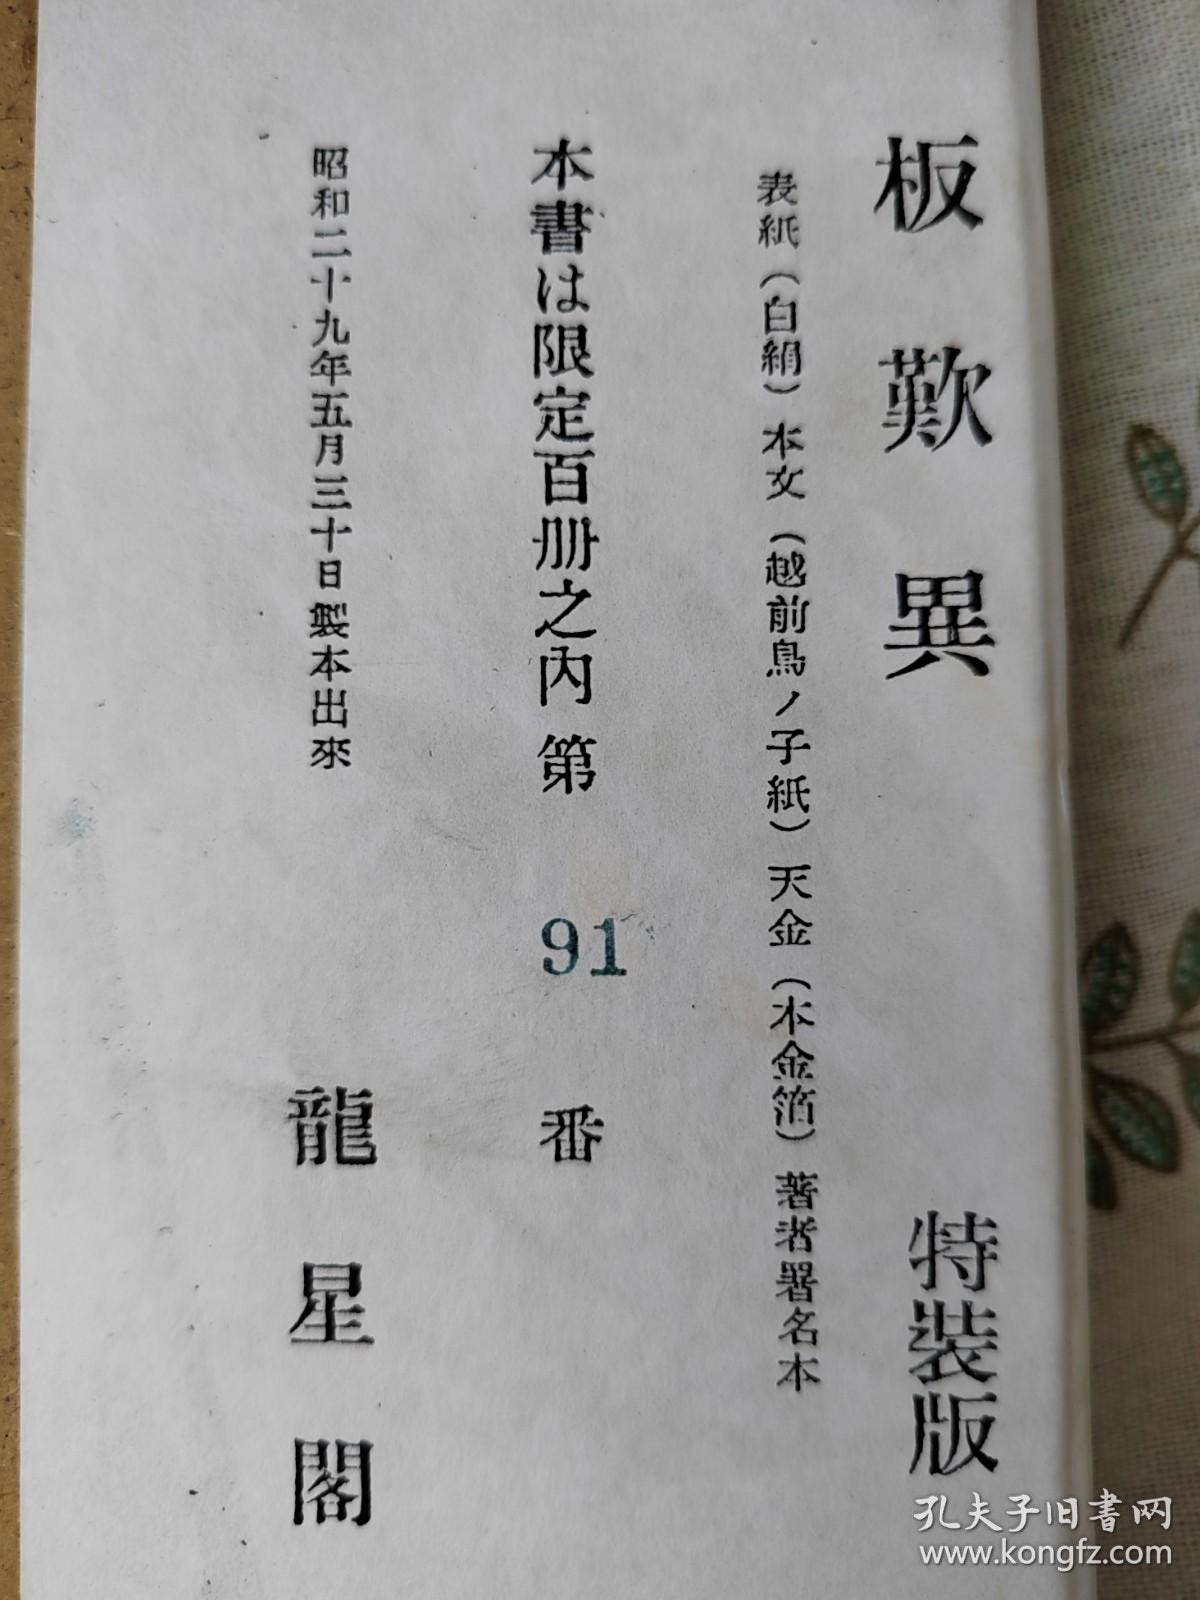 板歎異 特装版
表紙（白絹）本文（越前鳥ノ子紙）天金（本金箔）著者署名本
本書は限定百冊之内 第 91 番
昭和二十九年五月三十日製本出來
龍星閣
孔夫子旧書网
www.kongfz.com